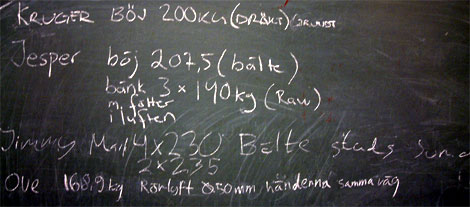 KRUGER BÖJ 200KG (DRÄKT)
Jesper böj 207,5 (bälte)
bänk 3 × 140kg (Raw)
m. fötter
i luften
Jimmy Mark 4x230 Bälte stads
2x235
Ove 168,9kg Rörlyft Ø50mm händerna samma väg